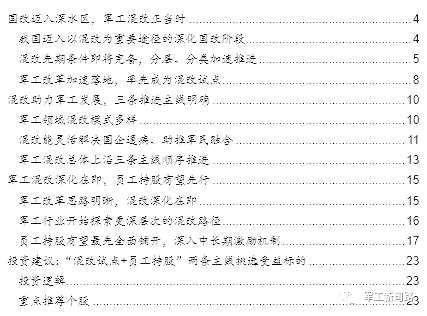 国改迈入深水区，军工混改正当时 4
我国迈入以混改为重要途径的深化国改阶段 4
混改先期条件即将完备，分层、分类加速推进 5
军工改革加速落地，率先成为混改试点 8
混改助力军工发展，三条推进主线明确 10
军工领域混改模式多样 10
混改能灵活解决国企通病、助推军民融合 11
军工混改总体上沿三条主线顺序推进 13
军工混改深化在即，员工持股有望先行 15
军工改革思路明晰，混改深化在即 15
军工行业开始探索更深层次的混改路径 16
员工持股有望最先全面铺开，深入中长期激励机制 17
投资建议：“混改试点+员工持股”两条主线挑选受益标的 23
投资逻辑 23
重点推荐个股 23
军工新司